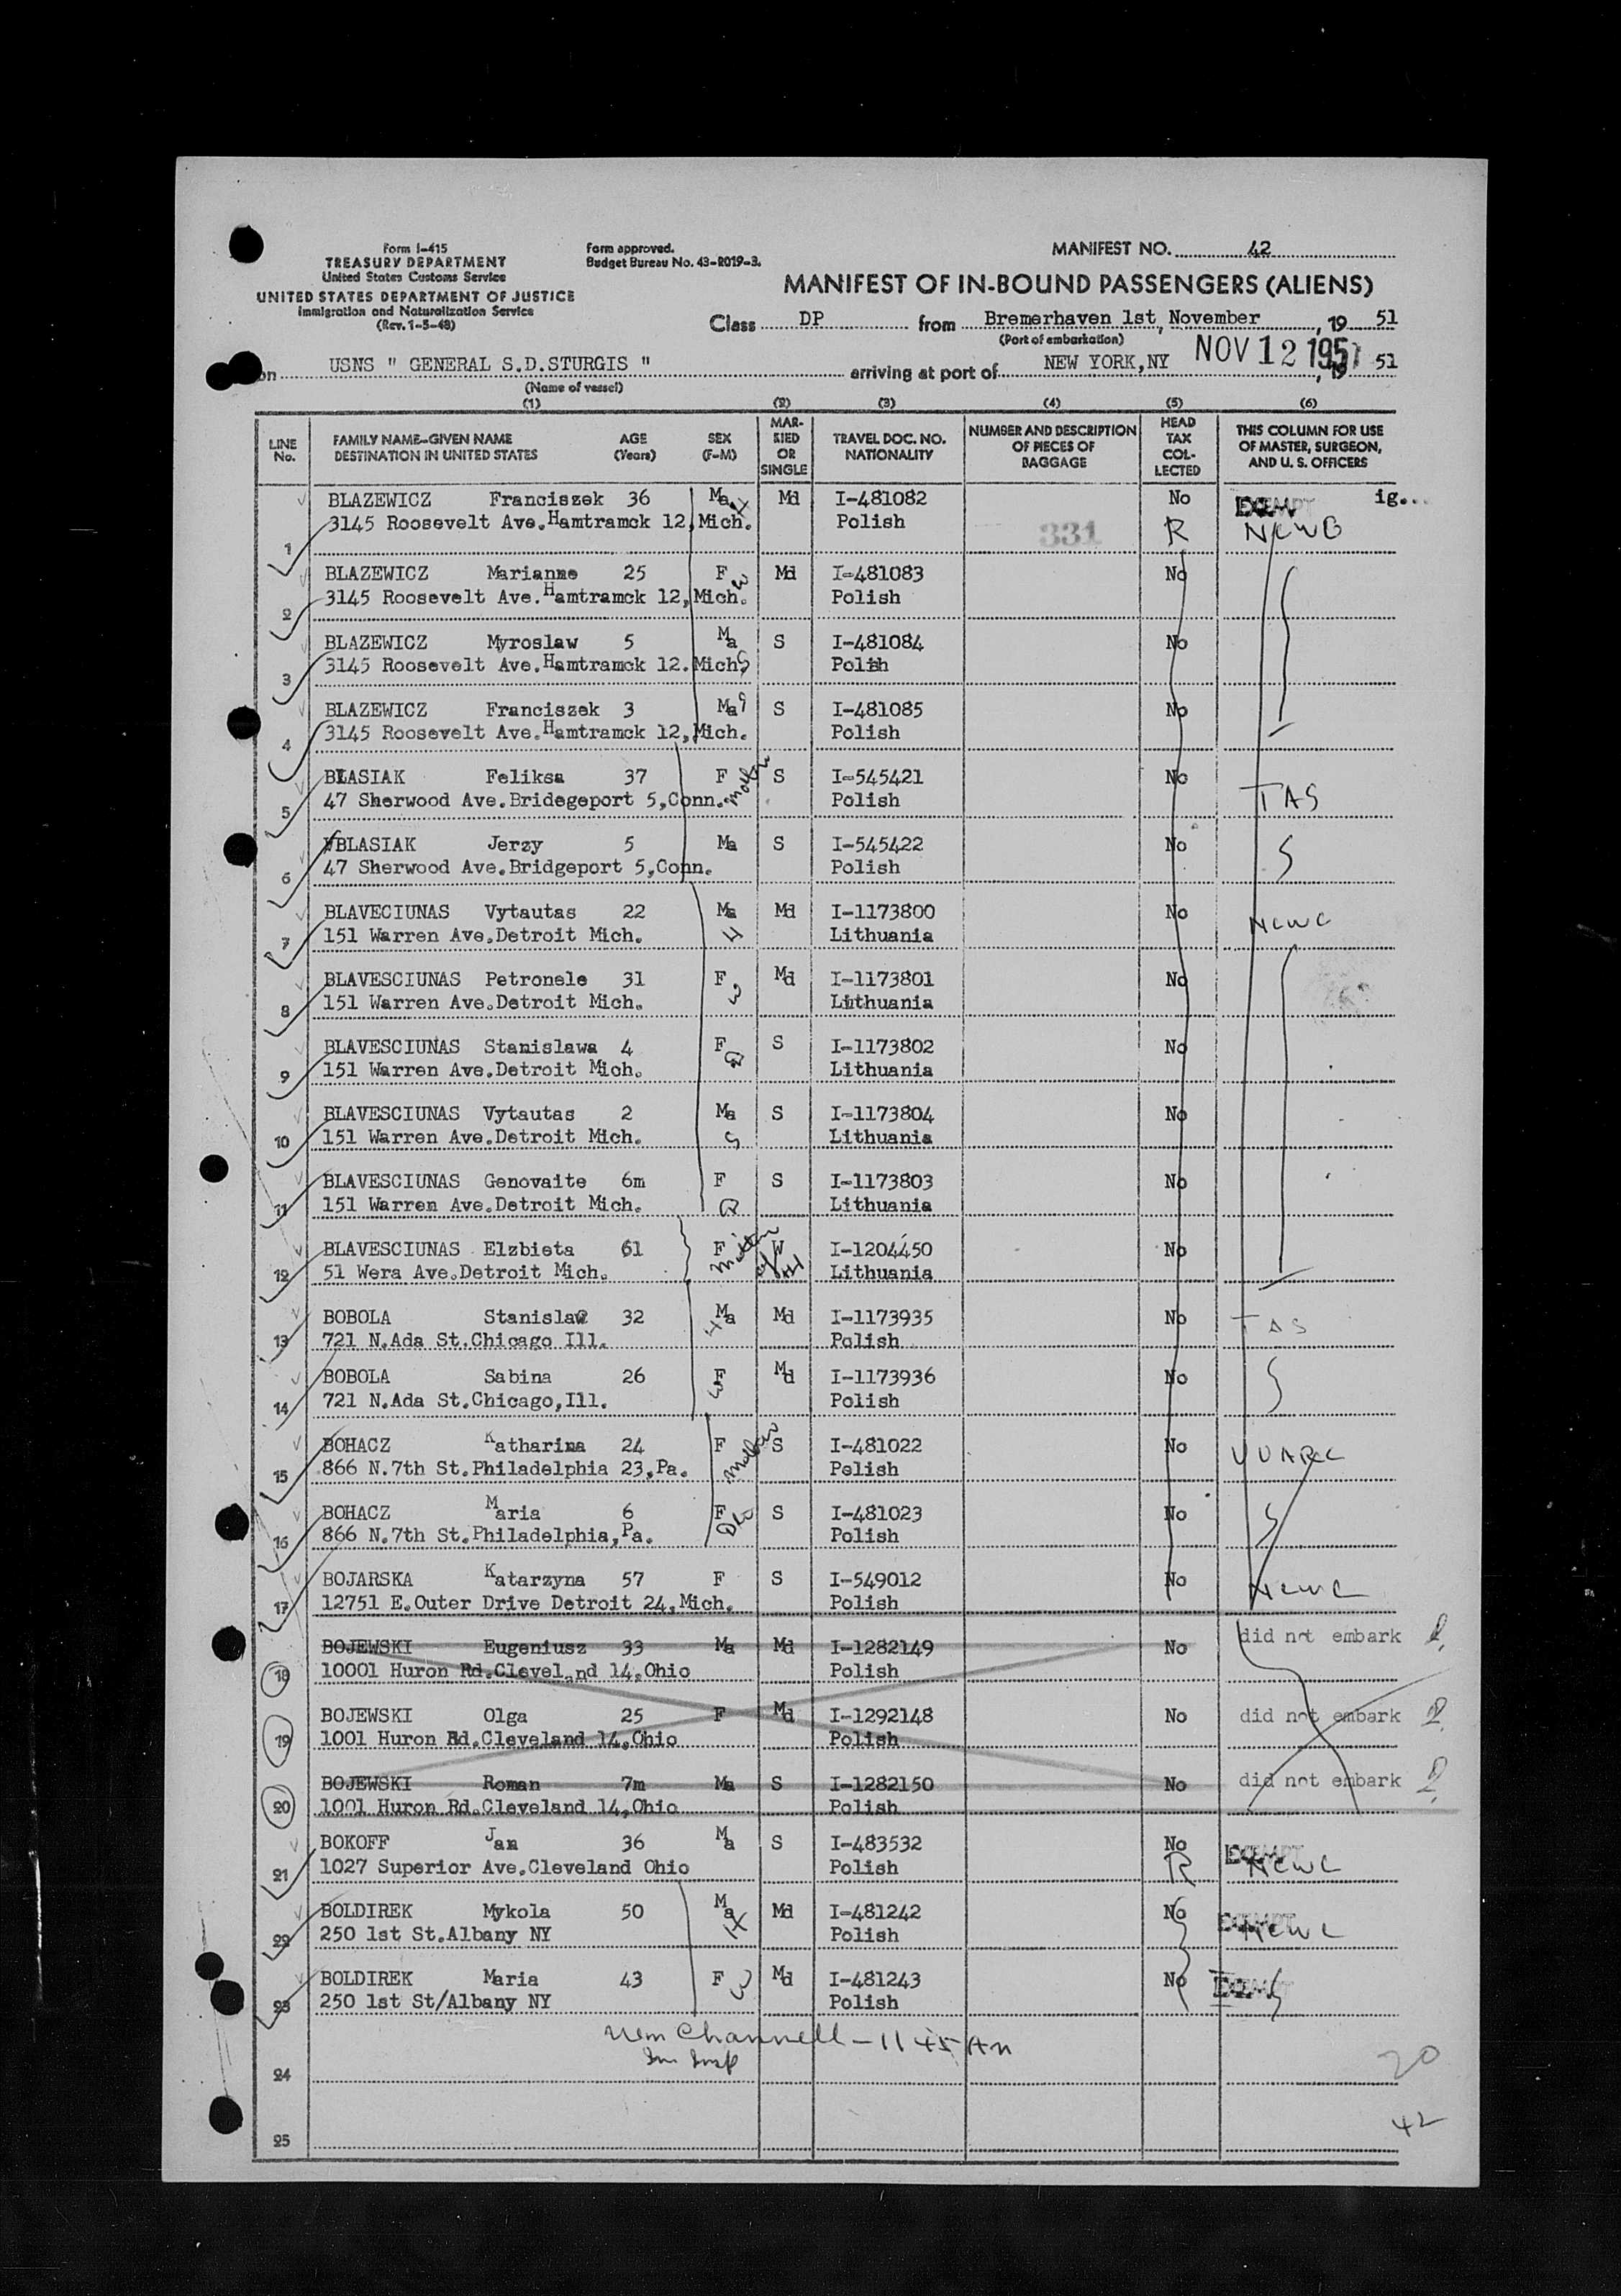 Form I-415
TREASURY DEPARTMENT
United States Customs Service
UNITED STATES DEPARTMENT OF JUSTICE
Immigration and Naturalization Service
(Rev. 1-5-48)
Form approved.
Budget Bureau No. 43-R019-3.
MANIFEST NO. 42
MANIFEST OF IN-BOUND PASSENGERS (ALIENS)
Class DP from Bremerhaven 1st, November, 19 51
(Port of embarkation)
on USNS " GENERAL S.D.STURGIS " arriving at port of NEW YORK,NY NOV 12 1951, 19 51
(Name of vessel)
(1) (2) (3) (4) (5) (6)
LINE No. FAMILY NAME-GIVEN NAME DESTINATION IN UNITED STATES AGE (Years) SEX (F-M) MARRIED OR SINGLE TRAVEL DOC. NO. NATIONALITY NUMBER AND DESCRIPTION OF PIECES OF BAGGAGE HEAD TAX COLLECTED THIS COLUMN FOR USE OF MASTER, SURGEON, AND U. S. OFFICERS
BLAZEWICZ Franciszek 36 Ma Md I-481082 No EXEMPT ig...
1 3145 Roosevelt Ave.Hamtramck 12,Mich. Polish 331 R NCWC
BLAZEWICZ Marianne 25 F W Md I-481083 No
2 3145 Roosevelt Ave.Hamtramck 12,Mich. Polish
BLAZEWICZ Myroslaw 5 Ma S I-481084 No
3 3145 Roosevelt Ave.Hamtramck 12.Mich. S Polish
BLAZEWICZ Franciszek 3 Ma S S I-481085 No
4 3145 Roosevelt Ave.Hamtramck 12,Mich. Polish
BLASIAK Feliksa 37 F Mother S I-545421 No
5 47 Sherwood Ave.Bridegeport 5,Conn. Polish TAS
BLASIAK Jerzy 5 Ma S I-545422 No
6 47 Sherwood Ave.Bridgeport 5,Conn. Polish
BLAVECIUNAS Vytautas 22 Ma H Md I-1173800 No NCWC
7 151 Warren Ave.Detroit Mich. Lithuania
BLAVESCIUNAS Petronele 31 F W Md I-1173801 No
8 151 Warren Ave.Detroit Mich. Lithuania
BLAVESCIUNAS Stanislawa 4 F D S I-1173802 No
9 151 Warren Ave.Detroit Mich. Lithuania
BLAVESCIUNAS Vytautas 2 Ma S S I-1173804 No
10 151 Warren Ave.Detroit Mich. Lithuania
BLAVESCIUNAS Genovaite 6m F D S I-1173803 No
11 151 Warren Ave.Detroit Mich. Lithuania
BLAVESCIUNAS Elzbieta 61 F Mother of W I-1204450 No
12 51 Wera Ave.Detroit Mich. Lithuania
BOBOLA Stanislaw 32 Ma H Md I-1173935 No TAS
13 721 N.Ada St.Chicago Ill. Polish
BOBOLA Sabina 26 F W Md I-1173936 No
14 721 N.Ada St.Chicago,Ill. Polish
BOHACZ Katharina 24 F Mother S I-481022 No UUARC
15 866 N.7th St.Philadelphia 23,Pa. Polish
BOHACZ Maria 6 F S I-481023 No
16 866 N.7th St.Philadelphia,Pa. Polish
BOJARSKA Katarzyna 57 F S I-549012 No NCWC
17 12751 E.Outer Drive Detroit 24,Mich. Polish
BOJEWSKI Eugeniusz 33 Ma Md I-1282149 No did not embark
18 10001 Huron Rd.Cleveland 14,Ohio Polish
BOJEWSKI Olga 25 F Md I-1292148 No did not embark
19 1001 Huron Rd.Cleveland 14,Ohio Polish
BOJEWSKI Roman 7m Ma S I-1282150 No did not embark
20 1001 Huron Rd.Cleveland 14,Ohio Polish
BOKOFF Jan 36 Ma S I-483532 No EXEMPT
21 1027 Superior Ave.Cleveland Ohio Polish R NCWC
BOLDIREK Mykola 50 Ma H Md I-481242 No EXEMPT NCWC
22 250 1st St.Albany NY Polish
BOLDIREK Maria 43 F W Md I-481243 No EXEMPT
23 250 1st St/Albany NY Polish
Wm Channell - 11 45 AM
Im Insp
24 20
42
25